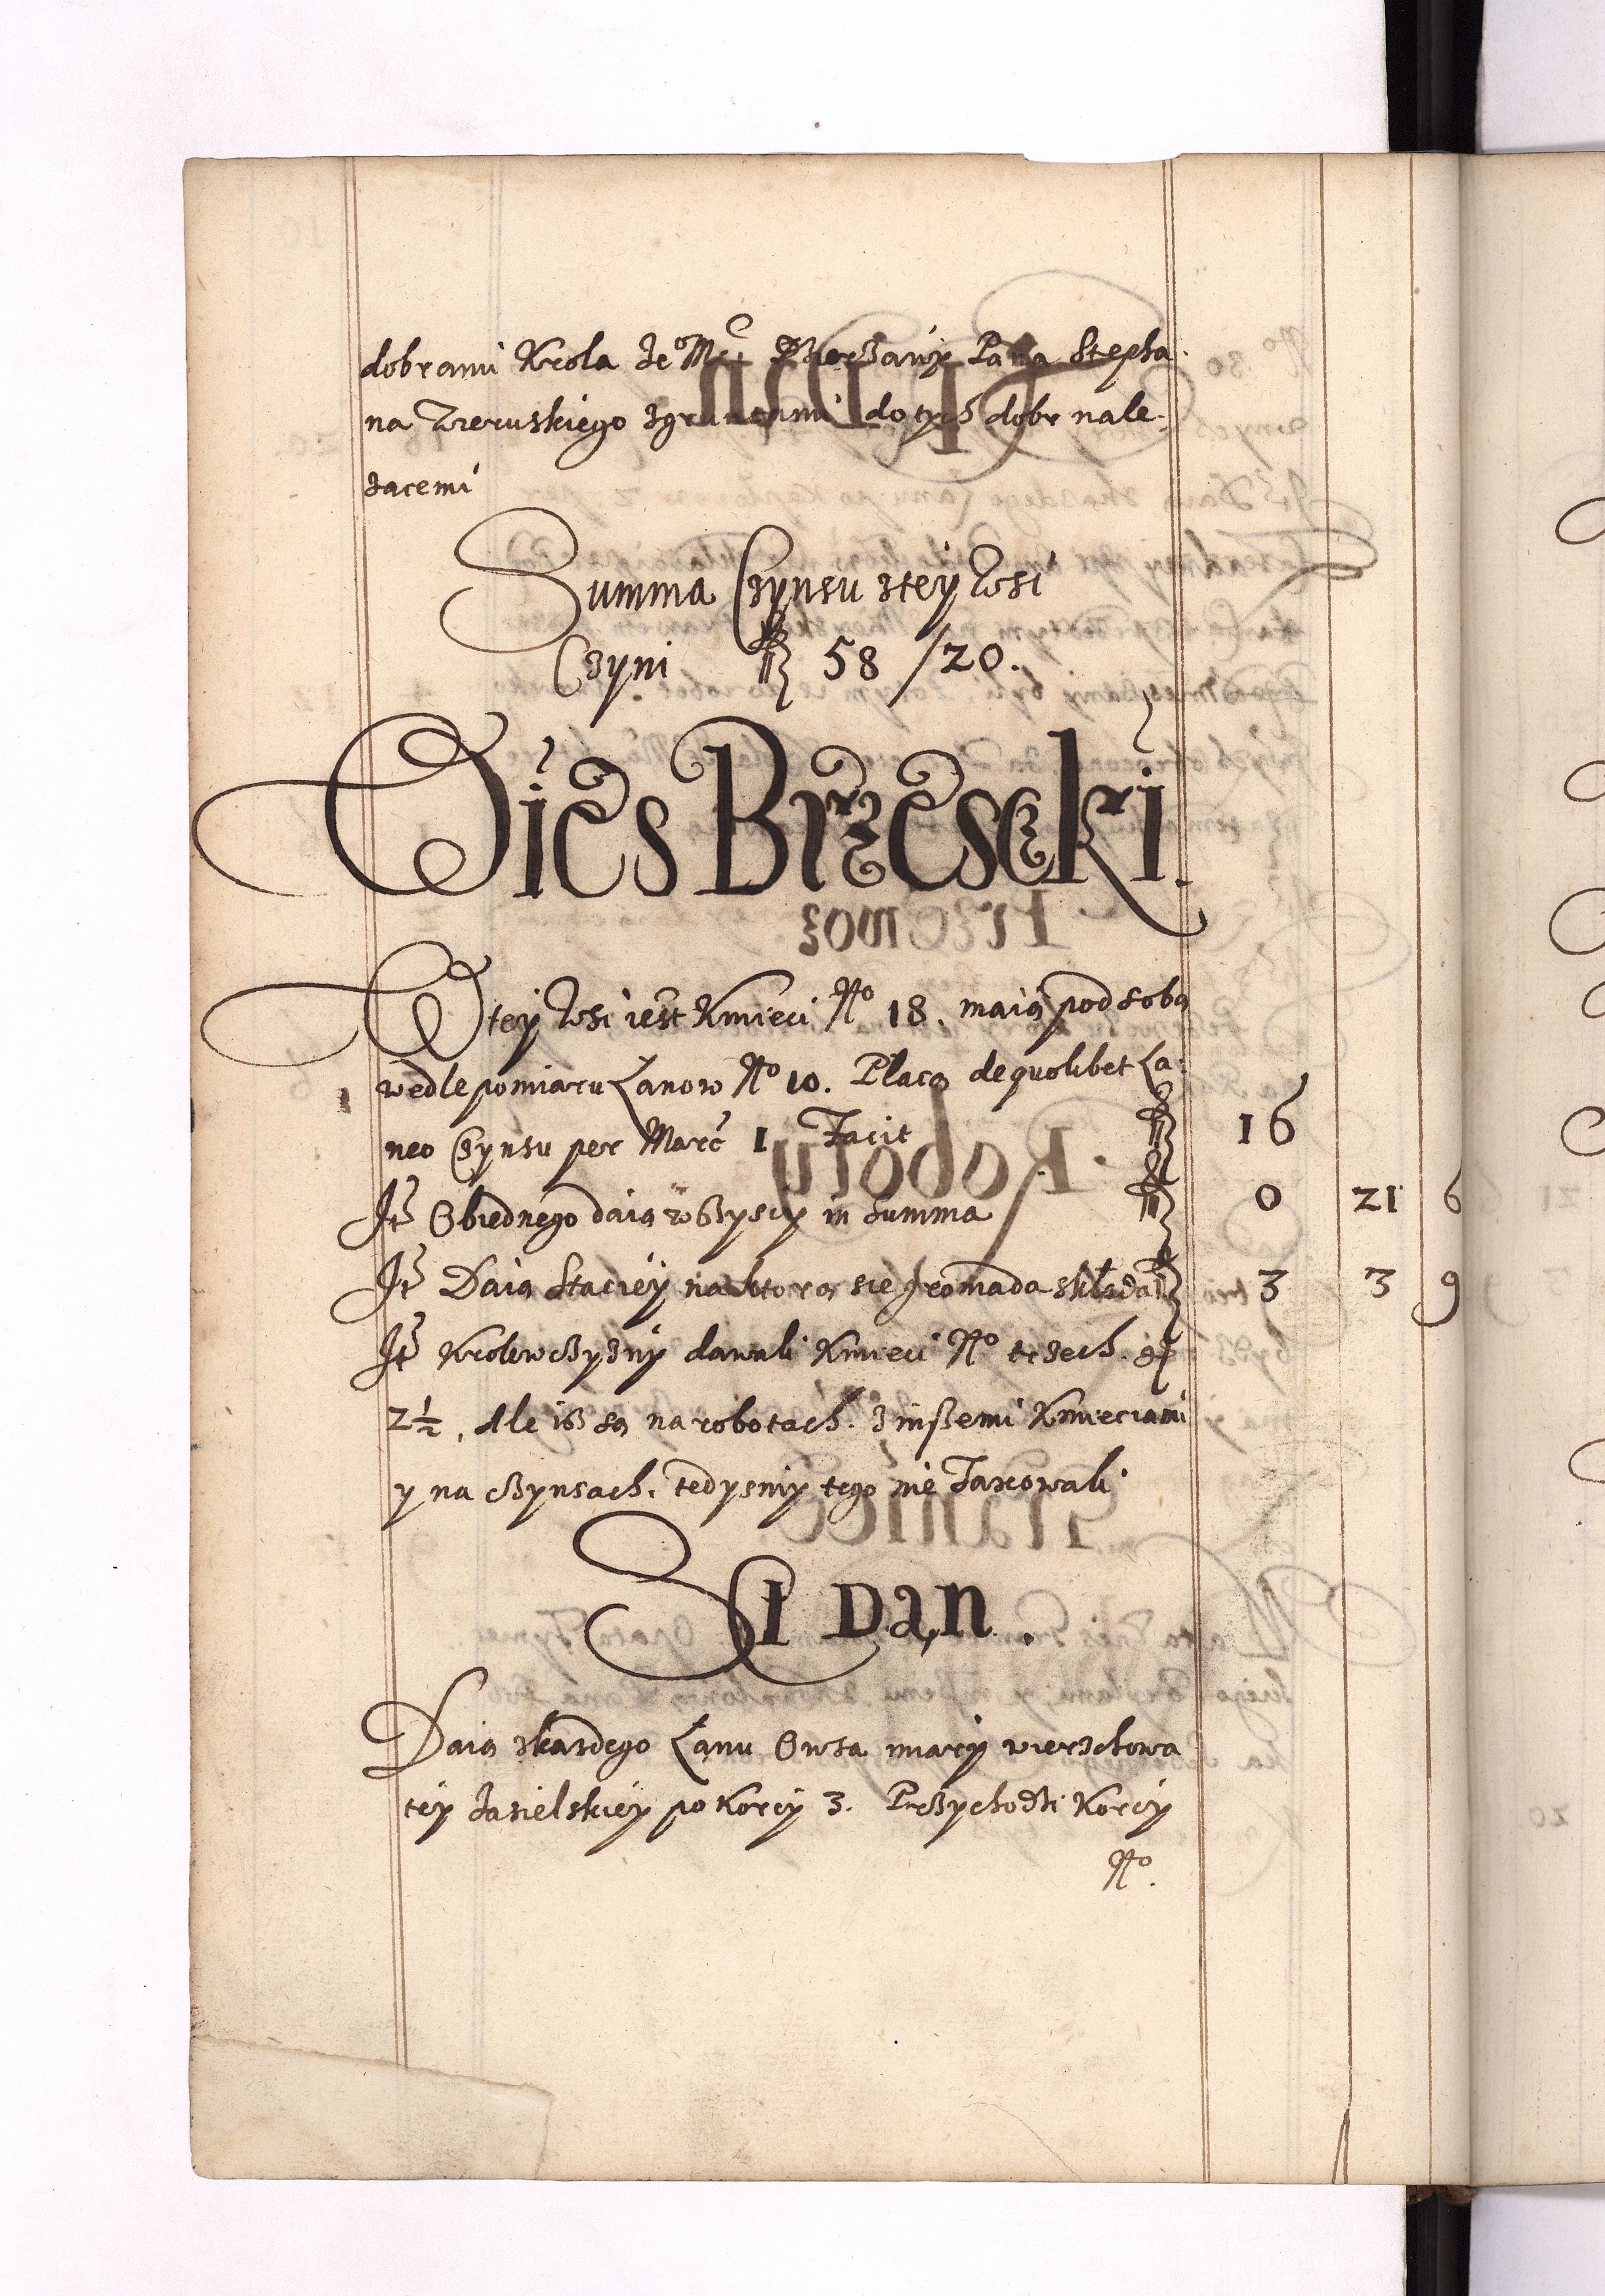 dobrami Krola Jeo Mci Dzierzawy Pana Stepha
na
skiego zgruntami do tych dobr nale
zacemi
Summa Czynsu ztey Wsi
Czyni fl 58 / 20.
Wies Brzesczki.
W tey Wsi iest Kmieci No 18. maią pod sobą
wedle pomiaru Łanow No 10. Płacą de quolibet La:
neo Czynsu per Marc 1 Facit fl 16
It Obiednego daią wszyscy in Summa fl 0 21 6
It Daią Staciey na ktorą sie gromada składa fl 3 3 9
It Krolewczyzny dawali Kmieci No trzech. gr
2½, Ale isz są na robotach. z inszemi Kmieciami
y na czynsach. tedysmy tego nie Taxowali
SI Dan.
Daią zkazdego Łanu Owsa miary wierzchowa
tey Jasielskiey po Korcy 3. Przychodzi Korcy
No.